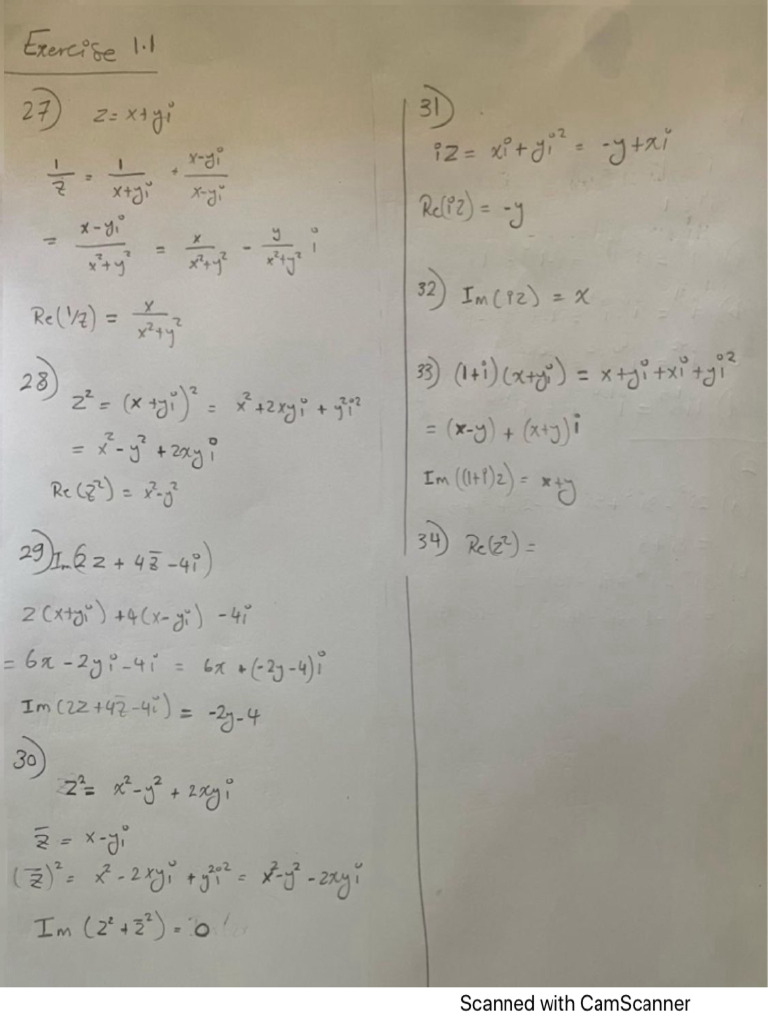 Exercise 1.1
27) z = x+yi
1/z = 1/(x+yi) · (x-yi)/(x-yi)
= (x-yi)/(x²+y²) = x/(x²+y²) - y/(x²+y²) i
Re(1/z) = x/(x²+y²)
28)
z² = (x+yi)² = x²+2xyi + y²i²
= x²-y² + 2xyi
Re(z²) = x²-y²
29) Im(2z + 4z̄ -4i)
2(x+yi) +4(x-yi) -4i
= 6x -2yi -4i = 6x + (-2y-4)i
Im(2z+4z̄-4i) = -2y-4
30)
z² = x²-y² + 2xyi
z̄ = x-yi
(z̄)² = x² - 2xyi + y²i² = x²-y² - 2xyi
Im(z²+z̄²) = 0
31)
iz = xi+yi² = -y+xi
Re(iz) = -y
32) Im(iz) = x
33) (1+i)(x+yi) = x+yi+xi+yi²
= (x-y) + (x+y)i
Im((1+i)z) = x+y
34) Re(z²) =
Scanned with CamScanner